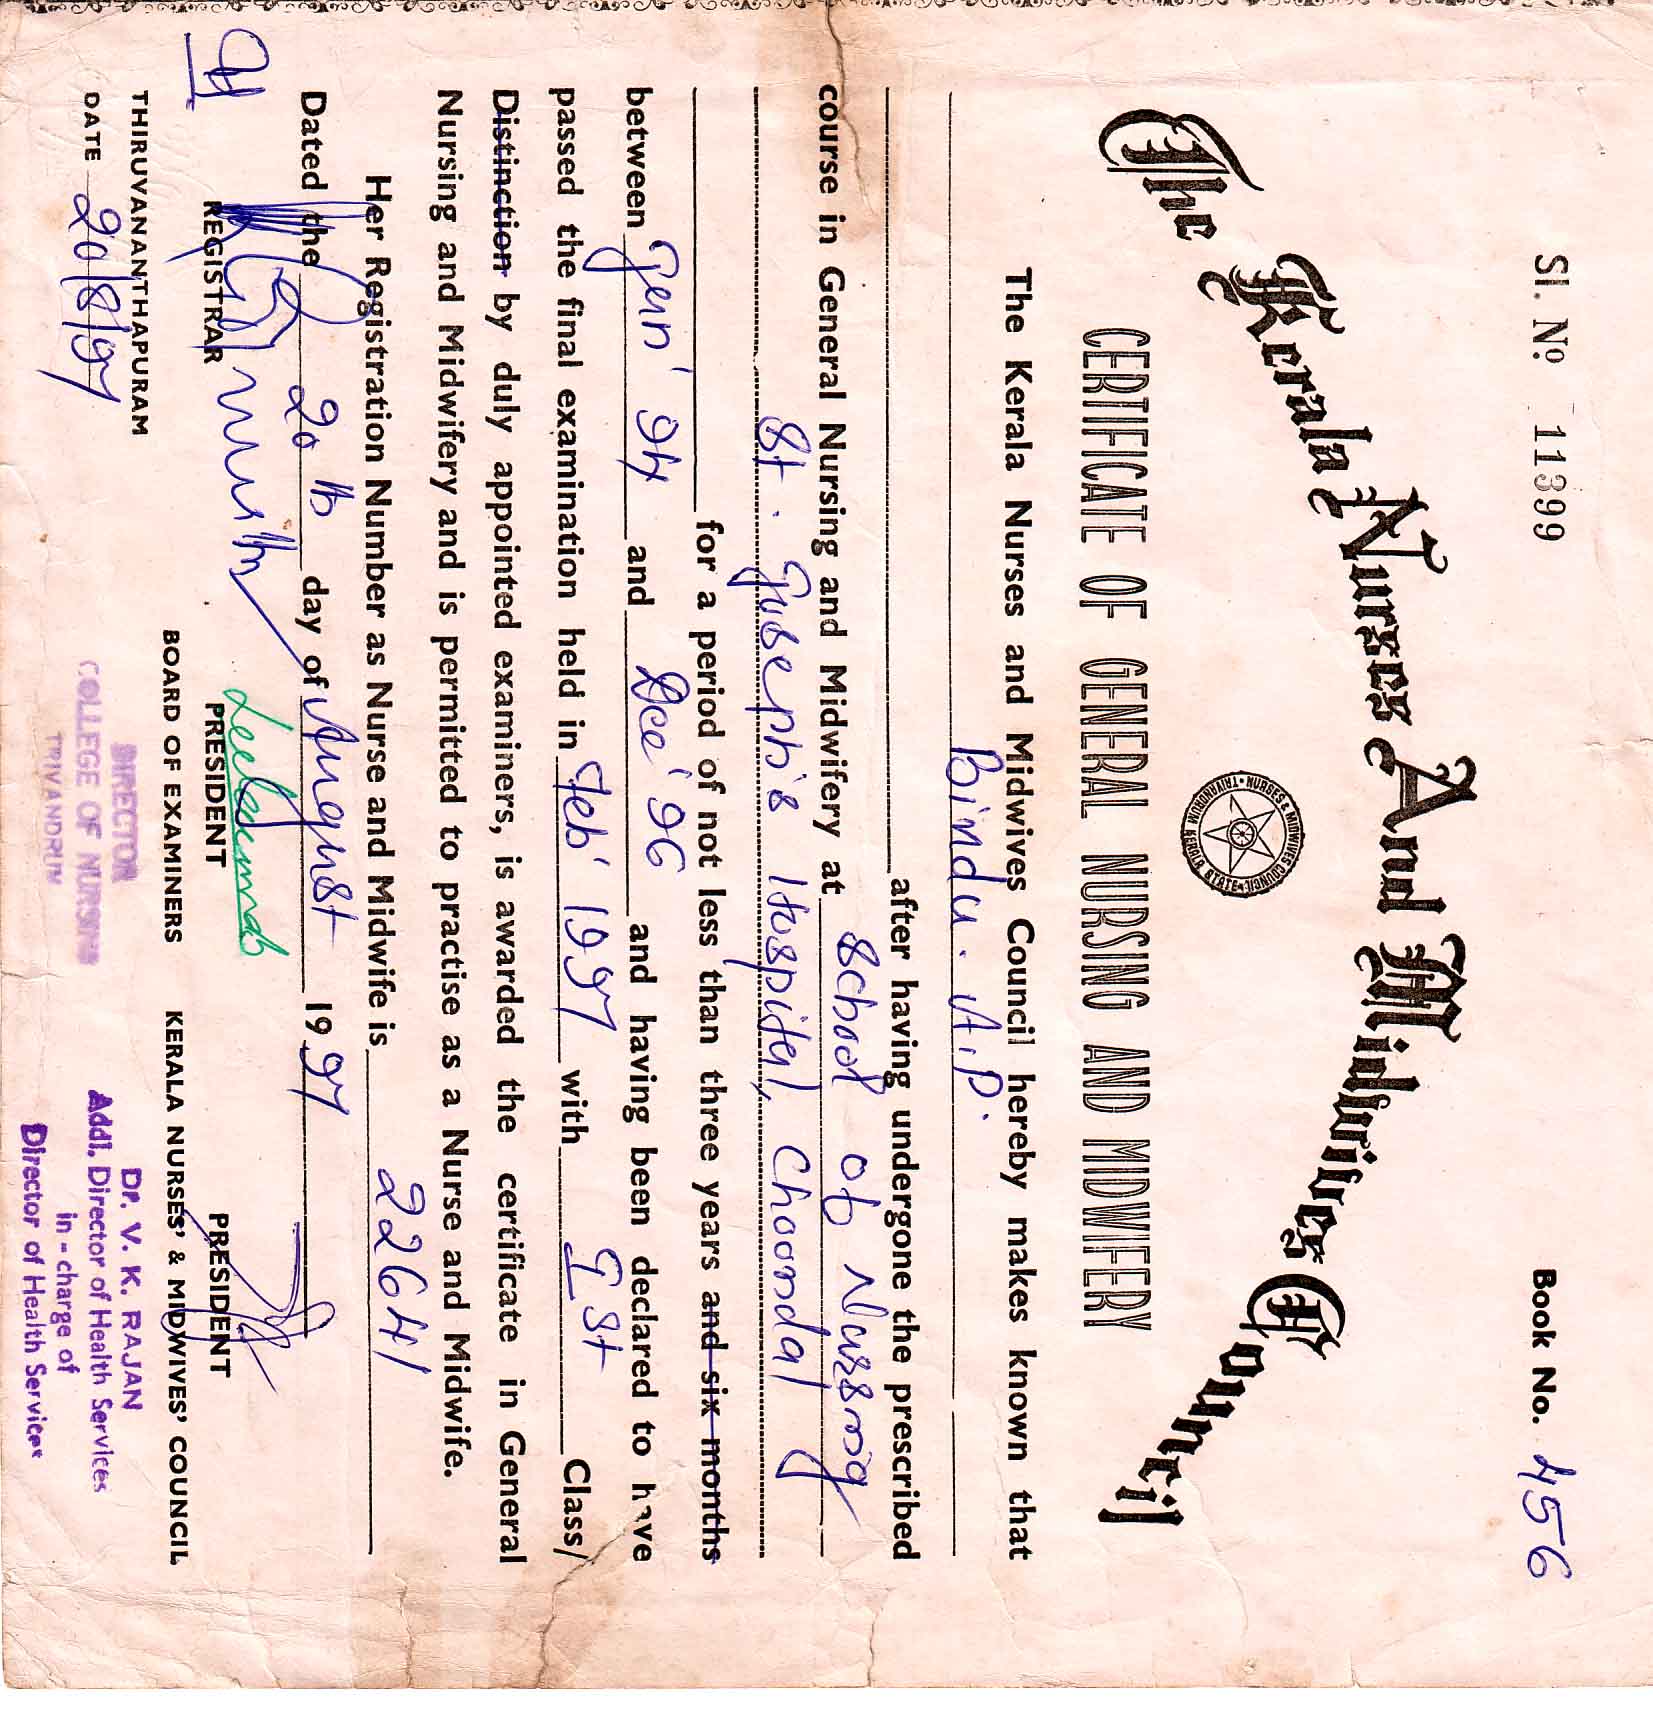 Sl. No 11399 Book No. 456
The Kerala Nurses And Midwifes Council
NURSES & MIDWIVES COUNCIL
TRIVANDRUM KERALA STATE
CERTIFICATE OF GENERAL NURSING AND MIDWIFERY
The Kerala Nurses and Midwives Council hereby makes known that
Bindu. A.P.
after having undergone the prescribed
course in General Nursing and Midwifery at School of Nursing
St. Joseph's Hospital, Choondal
for a period of not less than three years and six months
between Jan' 94 and Dec' 96 and having been declared to have
passed the final examination held in Feb' 1997 with I st Class/
Distinction by duly appointed examiners, is awarded the certificate in General
Nursing and Midwifery and is permitted to practise as a Nurse and Midwife.
Her Registration Number as Nurse and Midwife is 22641
Dated the 20 th day of August 1997
REGISTRAR PRESIDENT PRESIDENT
BOARD OF EXAMINERS KERALA NURSES' & MIDWIVES' COUNCIL
THIRUVANANTHAPURAM
DATE 20/8/97
DIRECTOR
COLLEGE OF NURSING
TRIVANDRUM
Dr. V. K. RAJAN
Addl. Director of Health Services
in - charge of
Director of Health Services